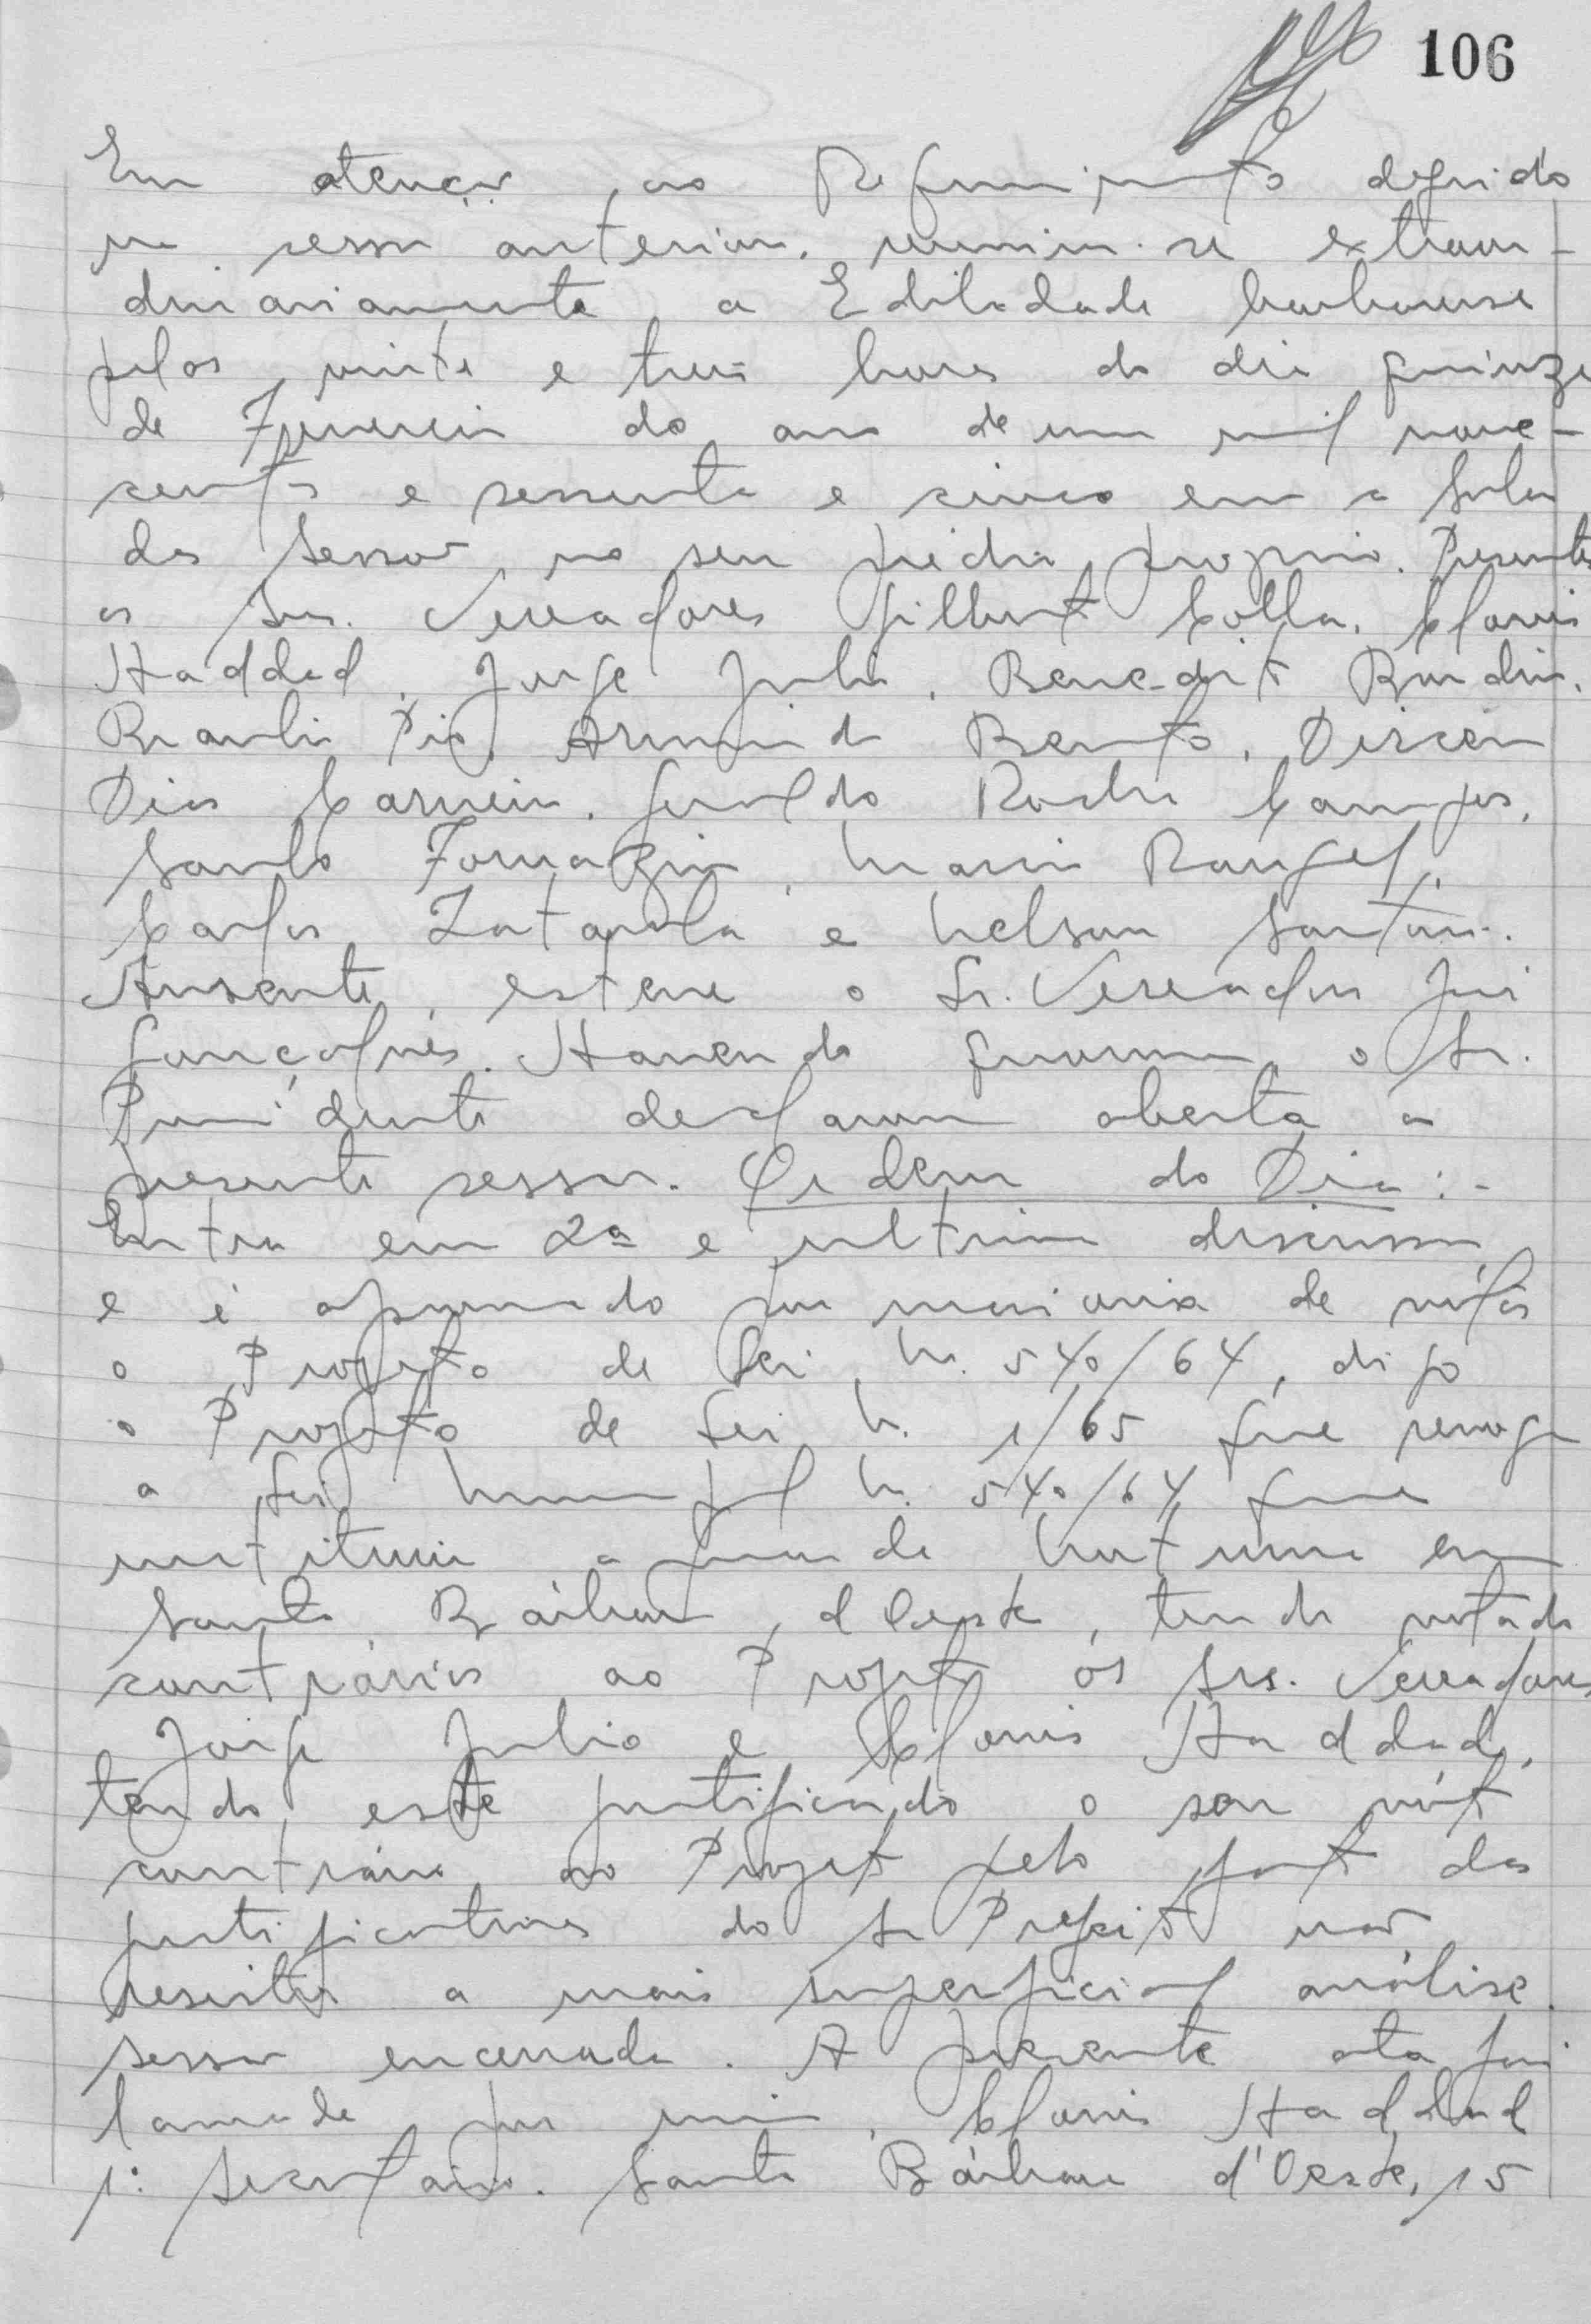 106
Em atenção ao Requerimento deferido
na sessão anterior, reuniu-se extraor-
dinariamente a Edilidade barbarense
pelas vinte e tres horas do dia quinze
de Fevereiro do ano de um mil nove-
centos e sessenta e cinco em a Sala
das Sessões no seu prédio proprio. Presentes
os Srs. Vereadores Gilberto Colla, Clovis
Haddad, Jorge Julio, Benedito
Braulio Pio, Armindo Bento, Dirceu
Dias Carneiro, Geraldo Rocha Campos,
Santo Fornazin, Mario Rangel,
Carlos e Nelson
Ausente esteve o Sr. Vereador
Gonçalves. Havendo quorum o Sr.
Presidente declarou aberta a
presente sessão. Ordem do Dia:-
Entra em 2ª e ultima discussão
e é aprovado por maioria de votos
o Projeto de Lei N. 540/64, digo
o Projeto de Lei N. 1/65 que revoga
a Lei Municipal N. 540/64 que
instituiu a Guarda Noturna em
Santa Bárbara d'Oeste, tendo votado
contrários ao Projeto os Srs. Vereadores
Jorge Julio e Clovis Haddad,
tendo este justificado o seu voto
contrário ao Projeto pelo fato das
justificativas do Sr Prefeito não
resistir a mais superficial análise.
Sessão encerrada. A presente ata foi
lavrada por mim, Clovis Haddad
1º Secretario. Santa Bárbara d'Oeste, 15